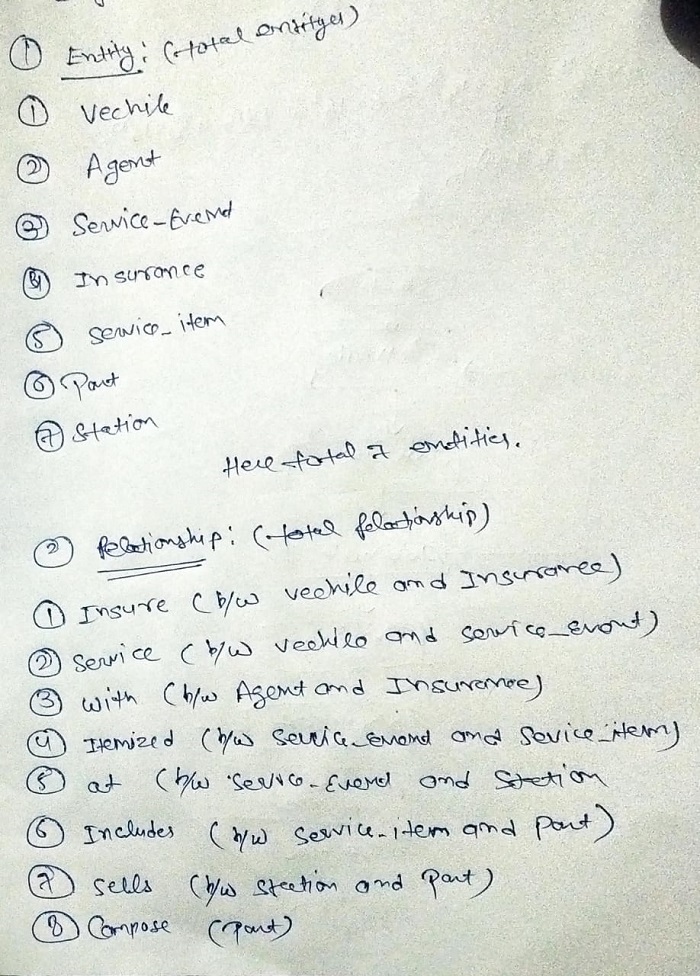 ① Entity: (total ensityes)
① Vechile
② Agent
③ Service-Evend
④ Insurance
⑤ Service_item
⑥ Part
⑦ Station
Here total 7 endities.
② Relationship: (total relationship)
① Insure (b/w vechile and Insurance)
② Service (b/w vechile and service_event)
③ with (b/w Agent and Insurance)
④ Itemized (b/w service_evend and Sevice_item)
⑤ at (b/w Service-Evend and Station
⑥ Includes (b/w service-item and Part)
⑦ Sells (b/w Station and Part)
⑧ Compose (Part)